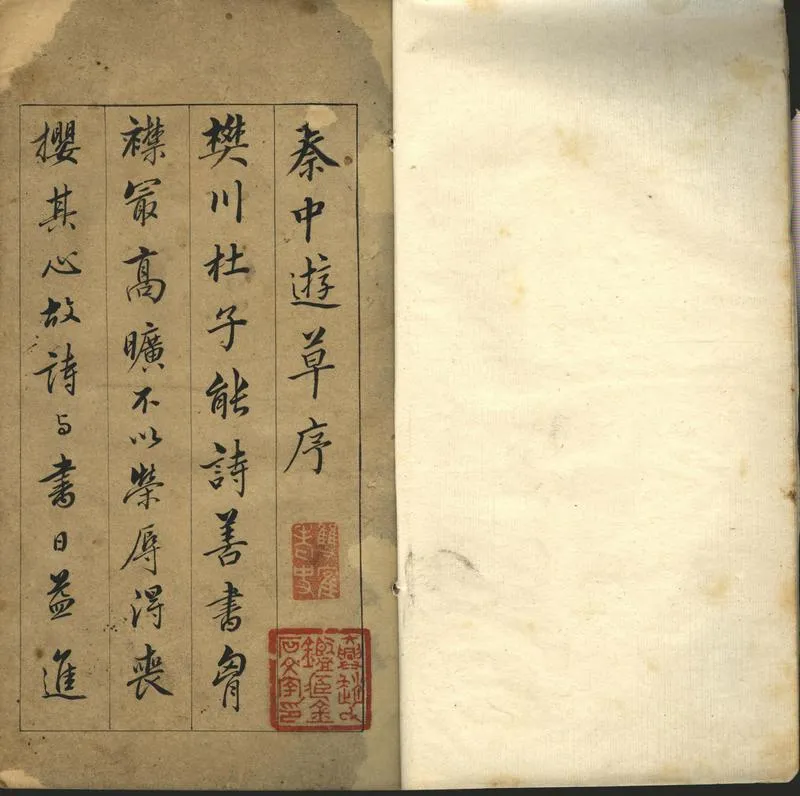 秦中遊草序
樊川杜子能詩善書胷
襟冣高曠不以榮辱得喪
攖其心故詩与書日益進